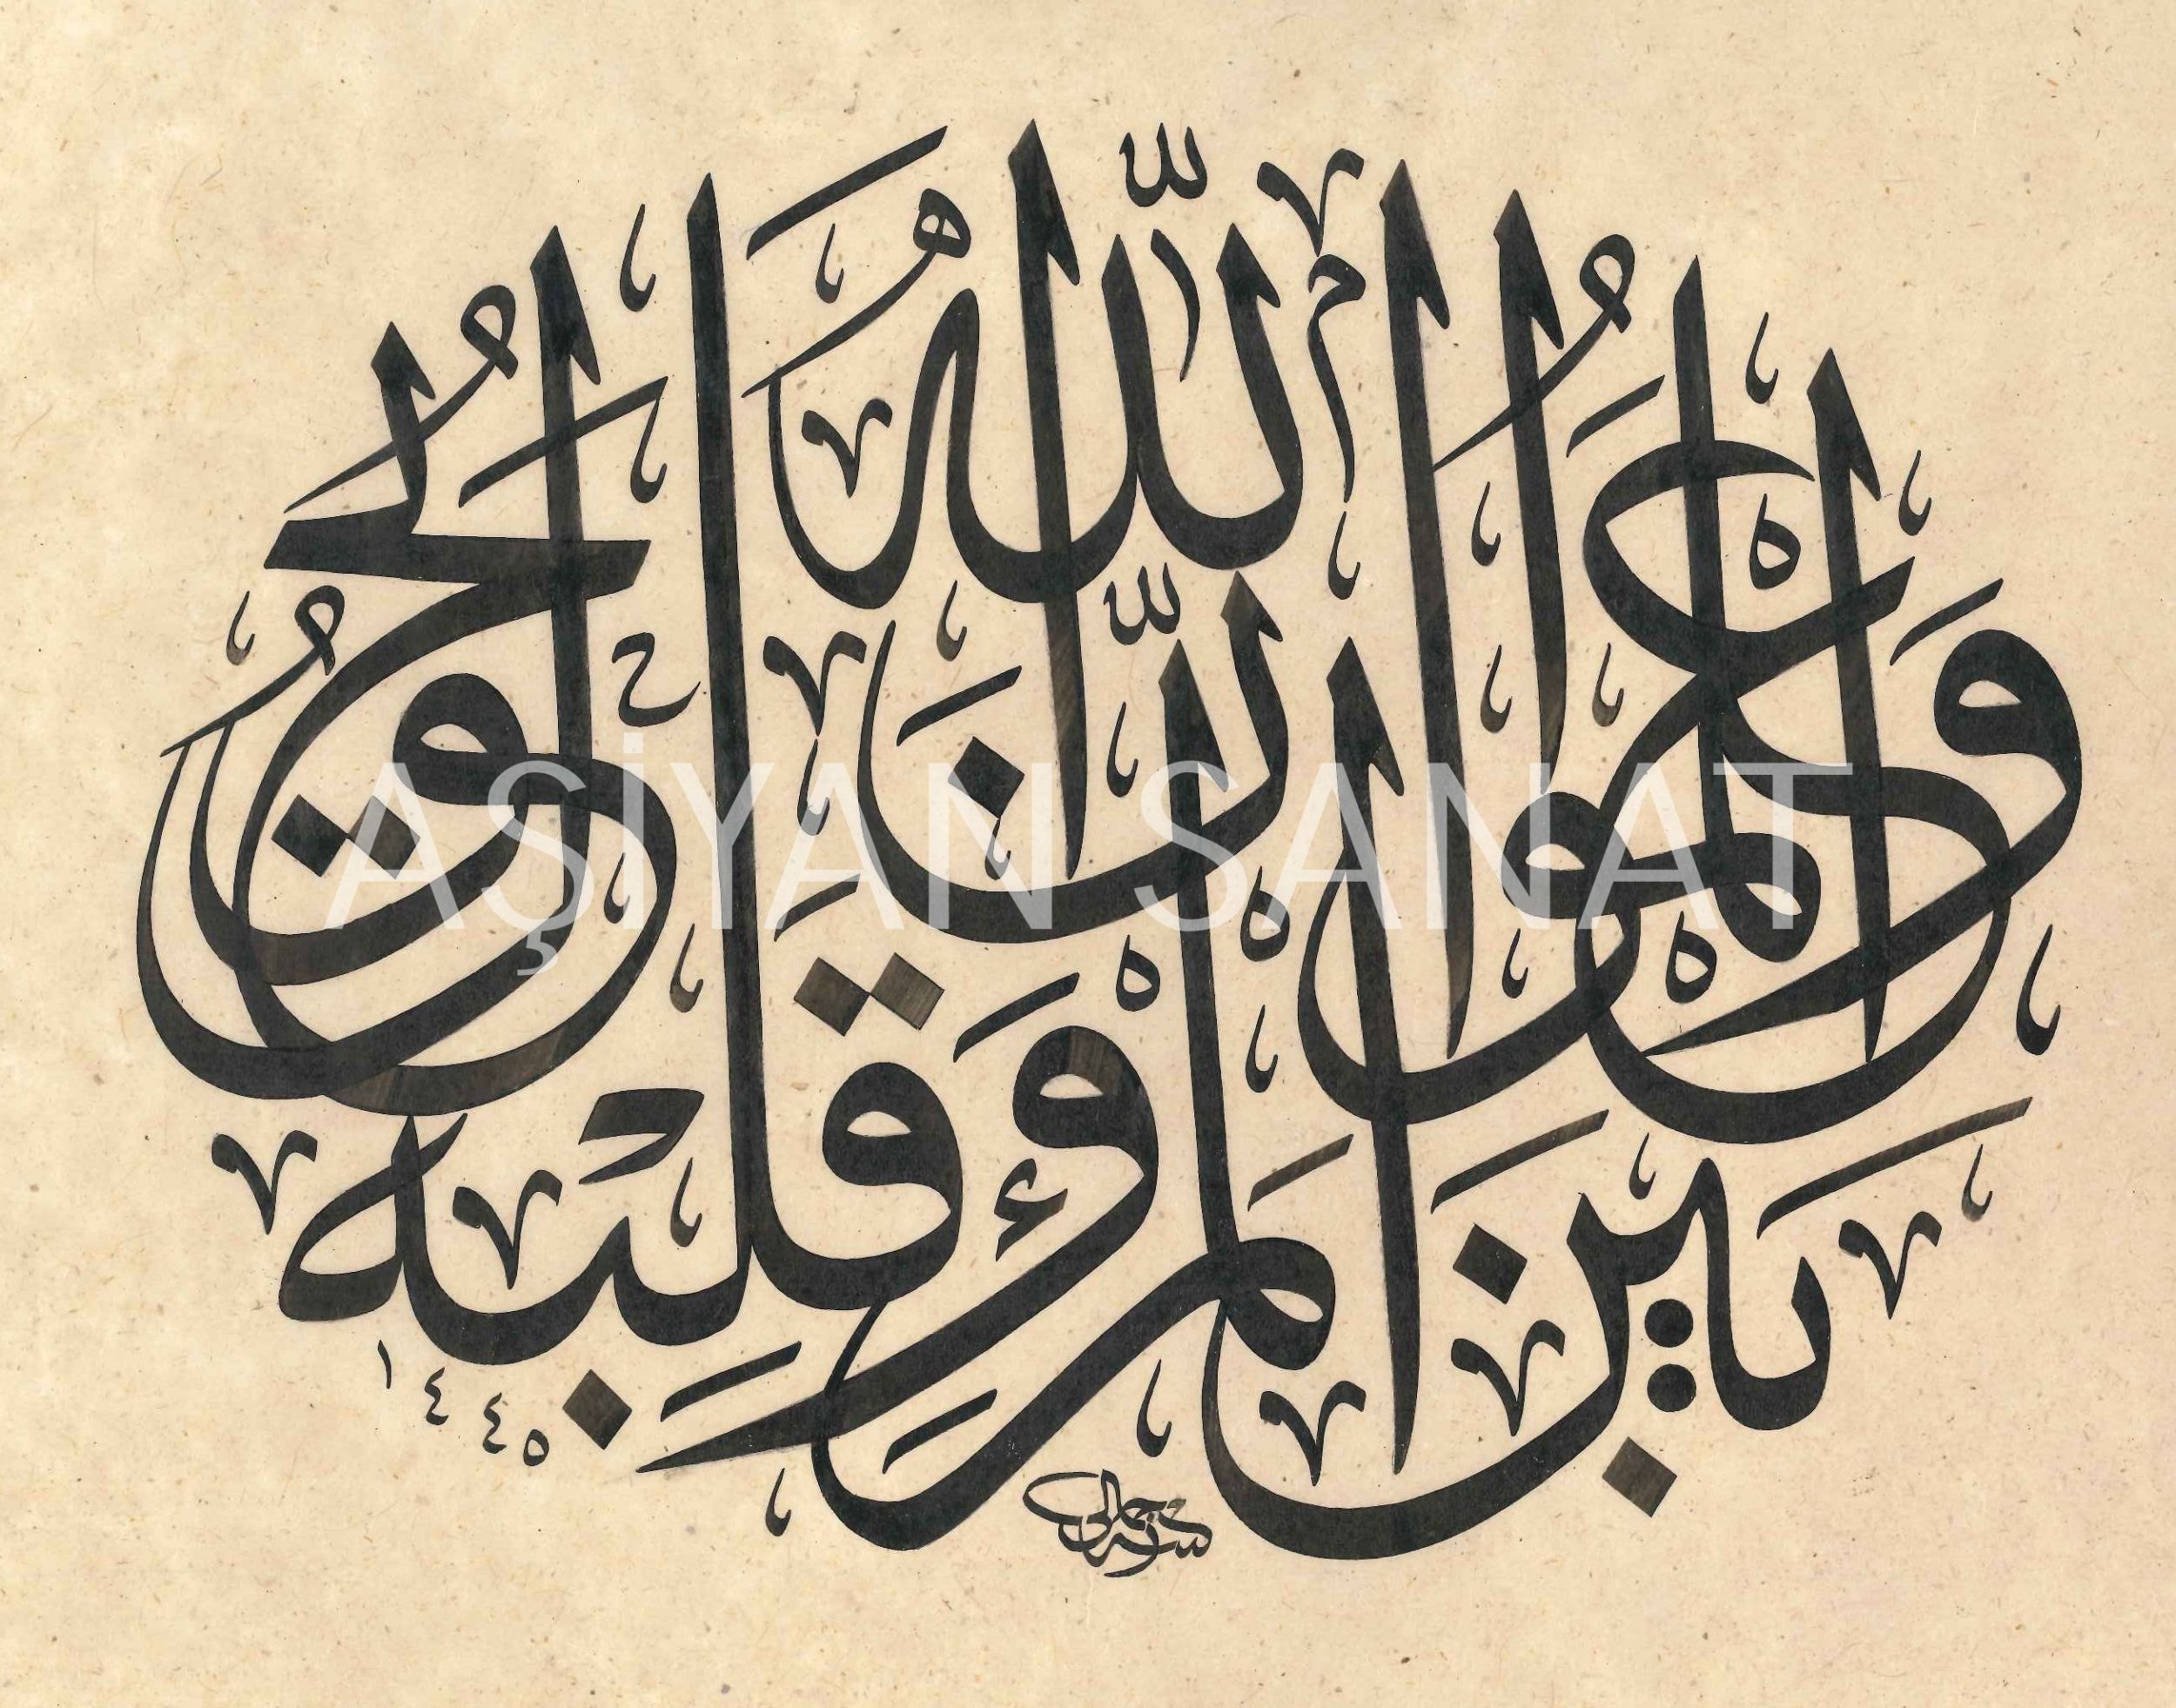 وَاعْلَمُوا أَنَّ اللَّهَ يَحُولُ
بَيْنَ الْمَرْءِ وَقَلْبِهِ
١٤٤٥
AŞİYAN SANAT